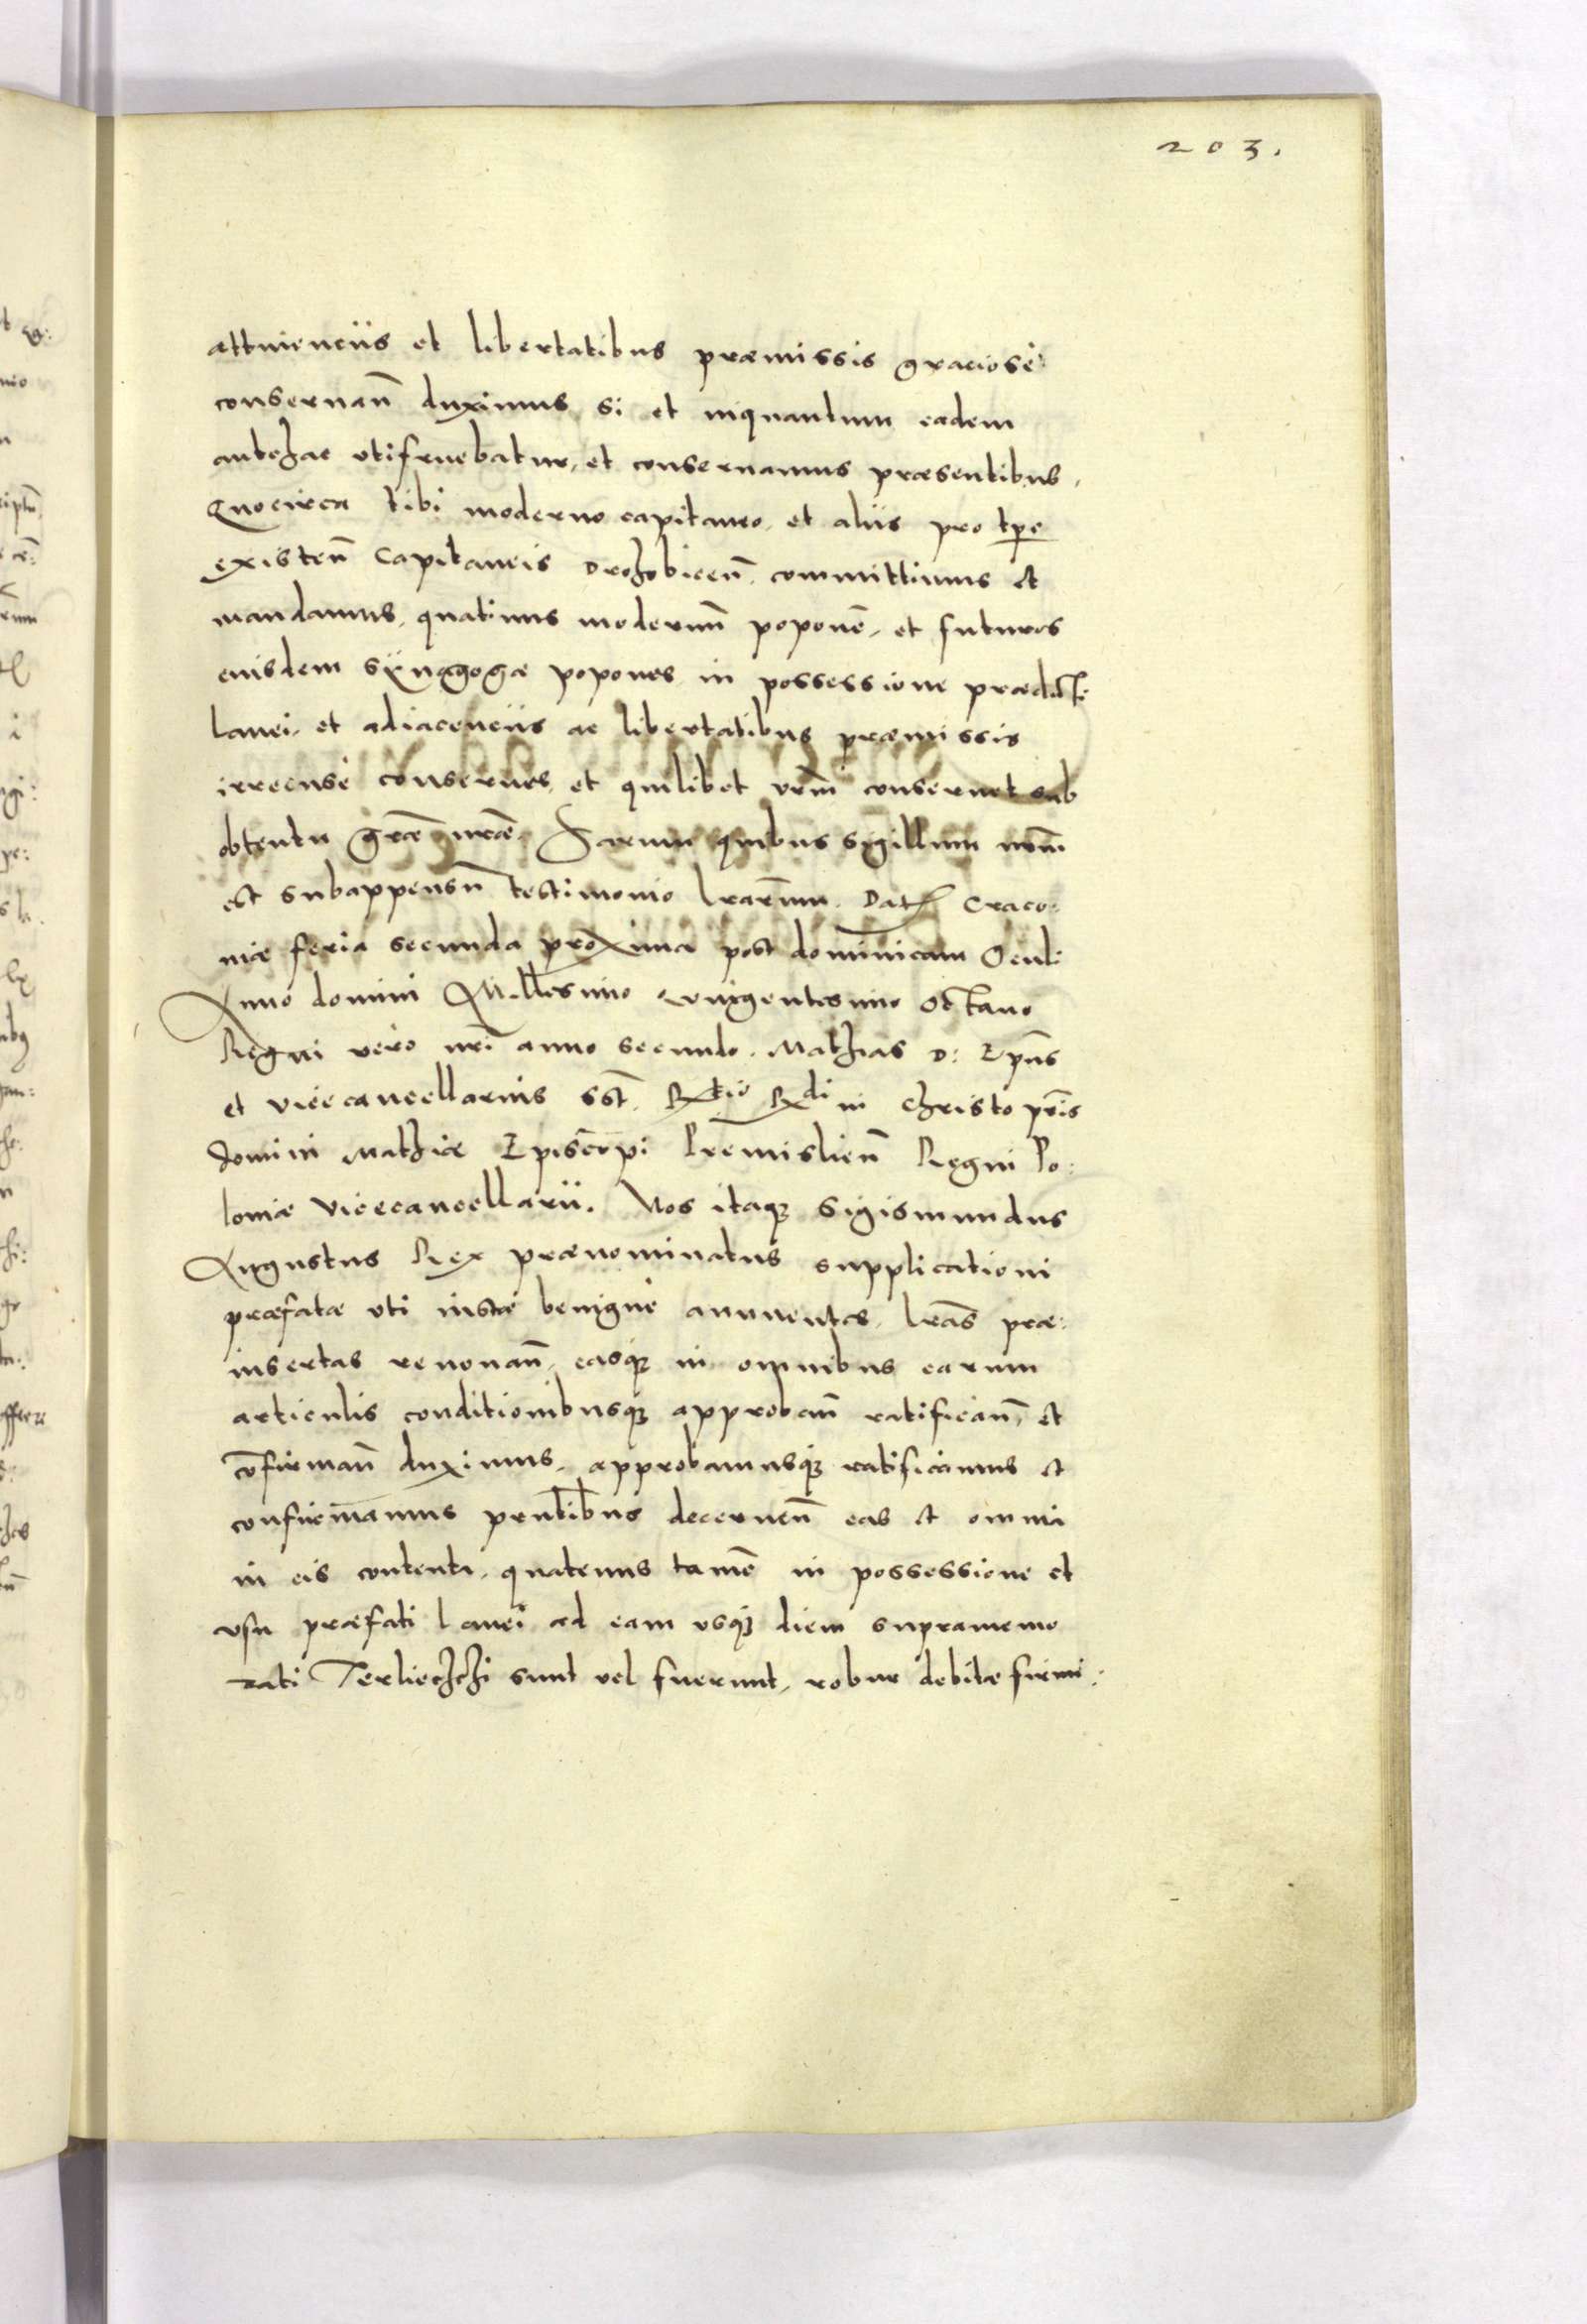 203.
attinenciis et libertatibus præmissis graciose
conseruan̄ duximus, si et inquantum eadem
antehac utifruebatur, et conseruamus præsentibus.
Quocirca tibi moderno capitaneo, et aliis pro tp̄e
existen̄ Capitaneis Drohobicen̄. committimus et
mandamus, quatinus modernū poponē, et futuros
eiusdem sÿnagogæ popones in possessione prædict:
lanei, et adiacenciis ac libertatibus præmissis
irrecusè conserues, et quilibet vrm̄ conseruet sub
obtentu grāe nrāe. Harum quibus sigillum nrm̄
est subappensū testimonio lrārum. Dat. Craco:
uiæ feria secunda proxima post dominicam Oculi
Anno domini Millesimo Quingentesimo Octauo
Regni vero nrī anno secundo. Mathias D: Epūs
et vicecancellarius sst̄. Rtio Rdi in christo pr̄is
Domini Mathiæ Episcopi Premislien̄ Regni Po:
loniæ Vicecancellarii. Nos itaq̨ Sigismundus
Augustus Rex prænominatus supplicationi
præfatæ uti iustæ benigne annuentes, lrās præ:
insertas renouan̄, easq̨ in omnibus earum
articulis conditionibusq̨ approban̄ ratifican̄, et
cōfirman̄ duximus, approbamusq̨ ratificamus et
confirmamus prn̄tibus decernen̄ eas et omnia
in eis contenta, quatenus tamē in possessione et
usu præfati lanei ad eam usq̨ diem supramemo
rati Terliechchi sunt vel fuerunt, robur debitæ firmi: